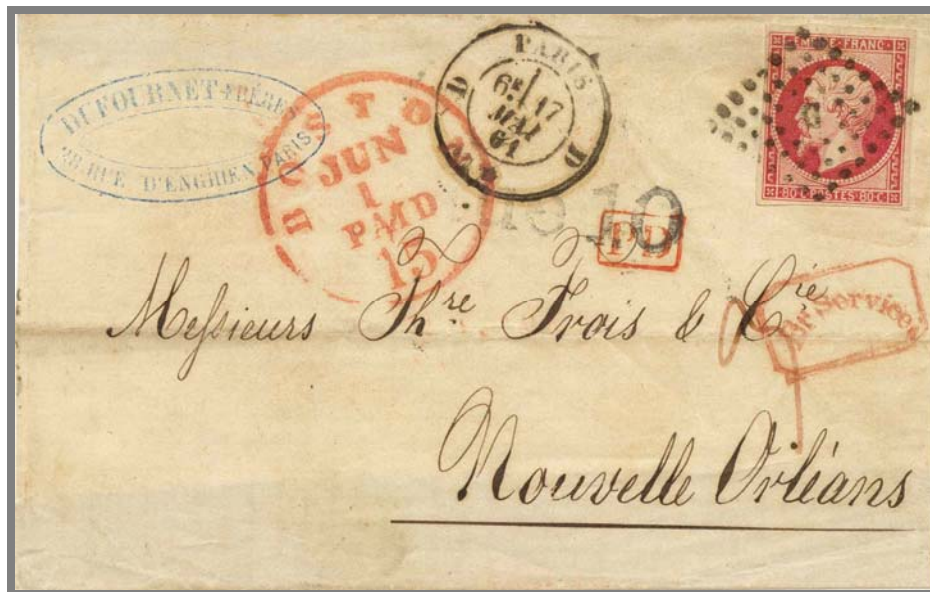 DUFOURNET FRÈRES
28. RUE D'ENGHIEN PARIS
BOSTON
JUN
1
PAID
15
PARIS
D
6E
17
MAI
61
D
EMPIRE · FRANC ·
80·C·POSTES·80·C·
10
PD
Br Service
Messieurs Thre Frois & Cie
Nouvelle Orléans